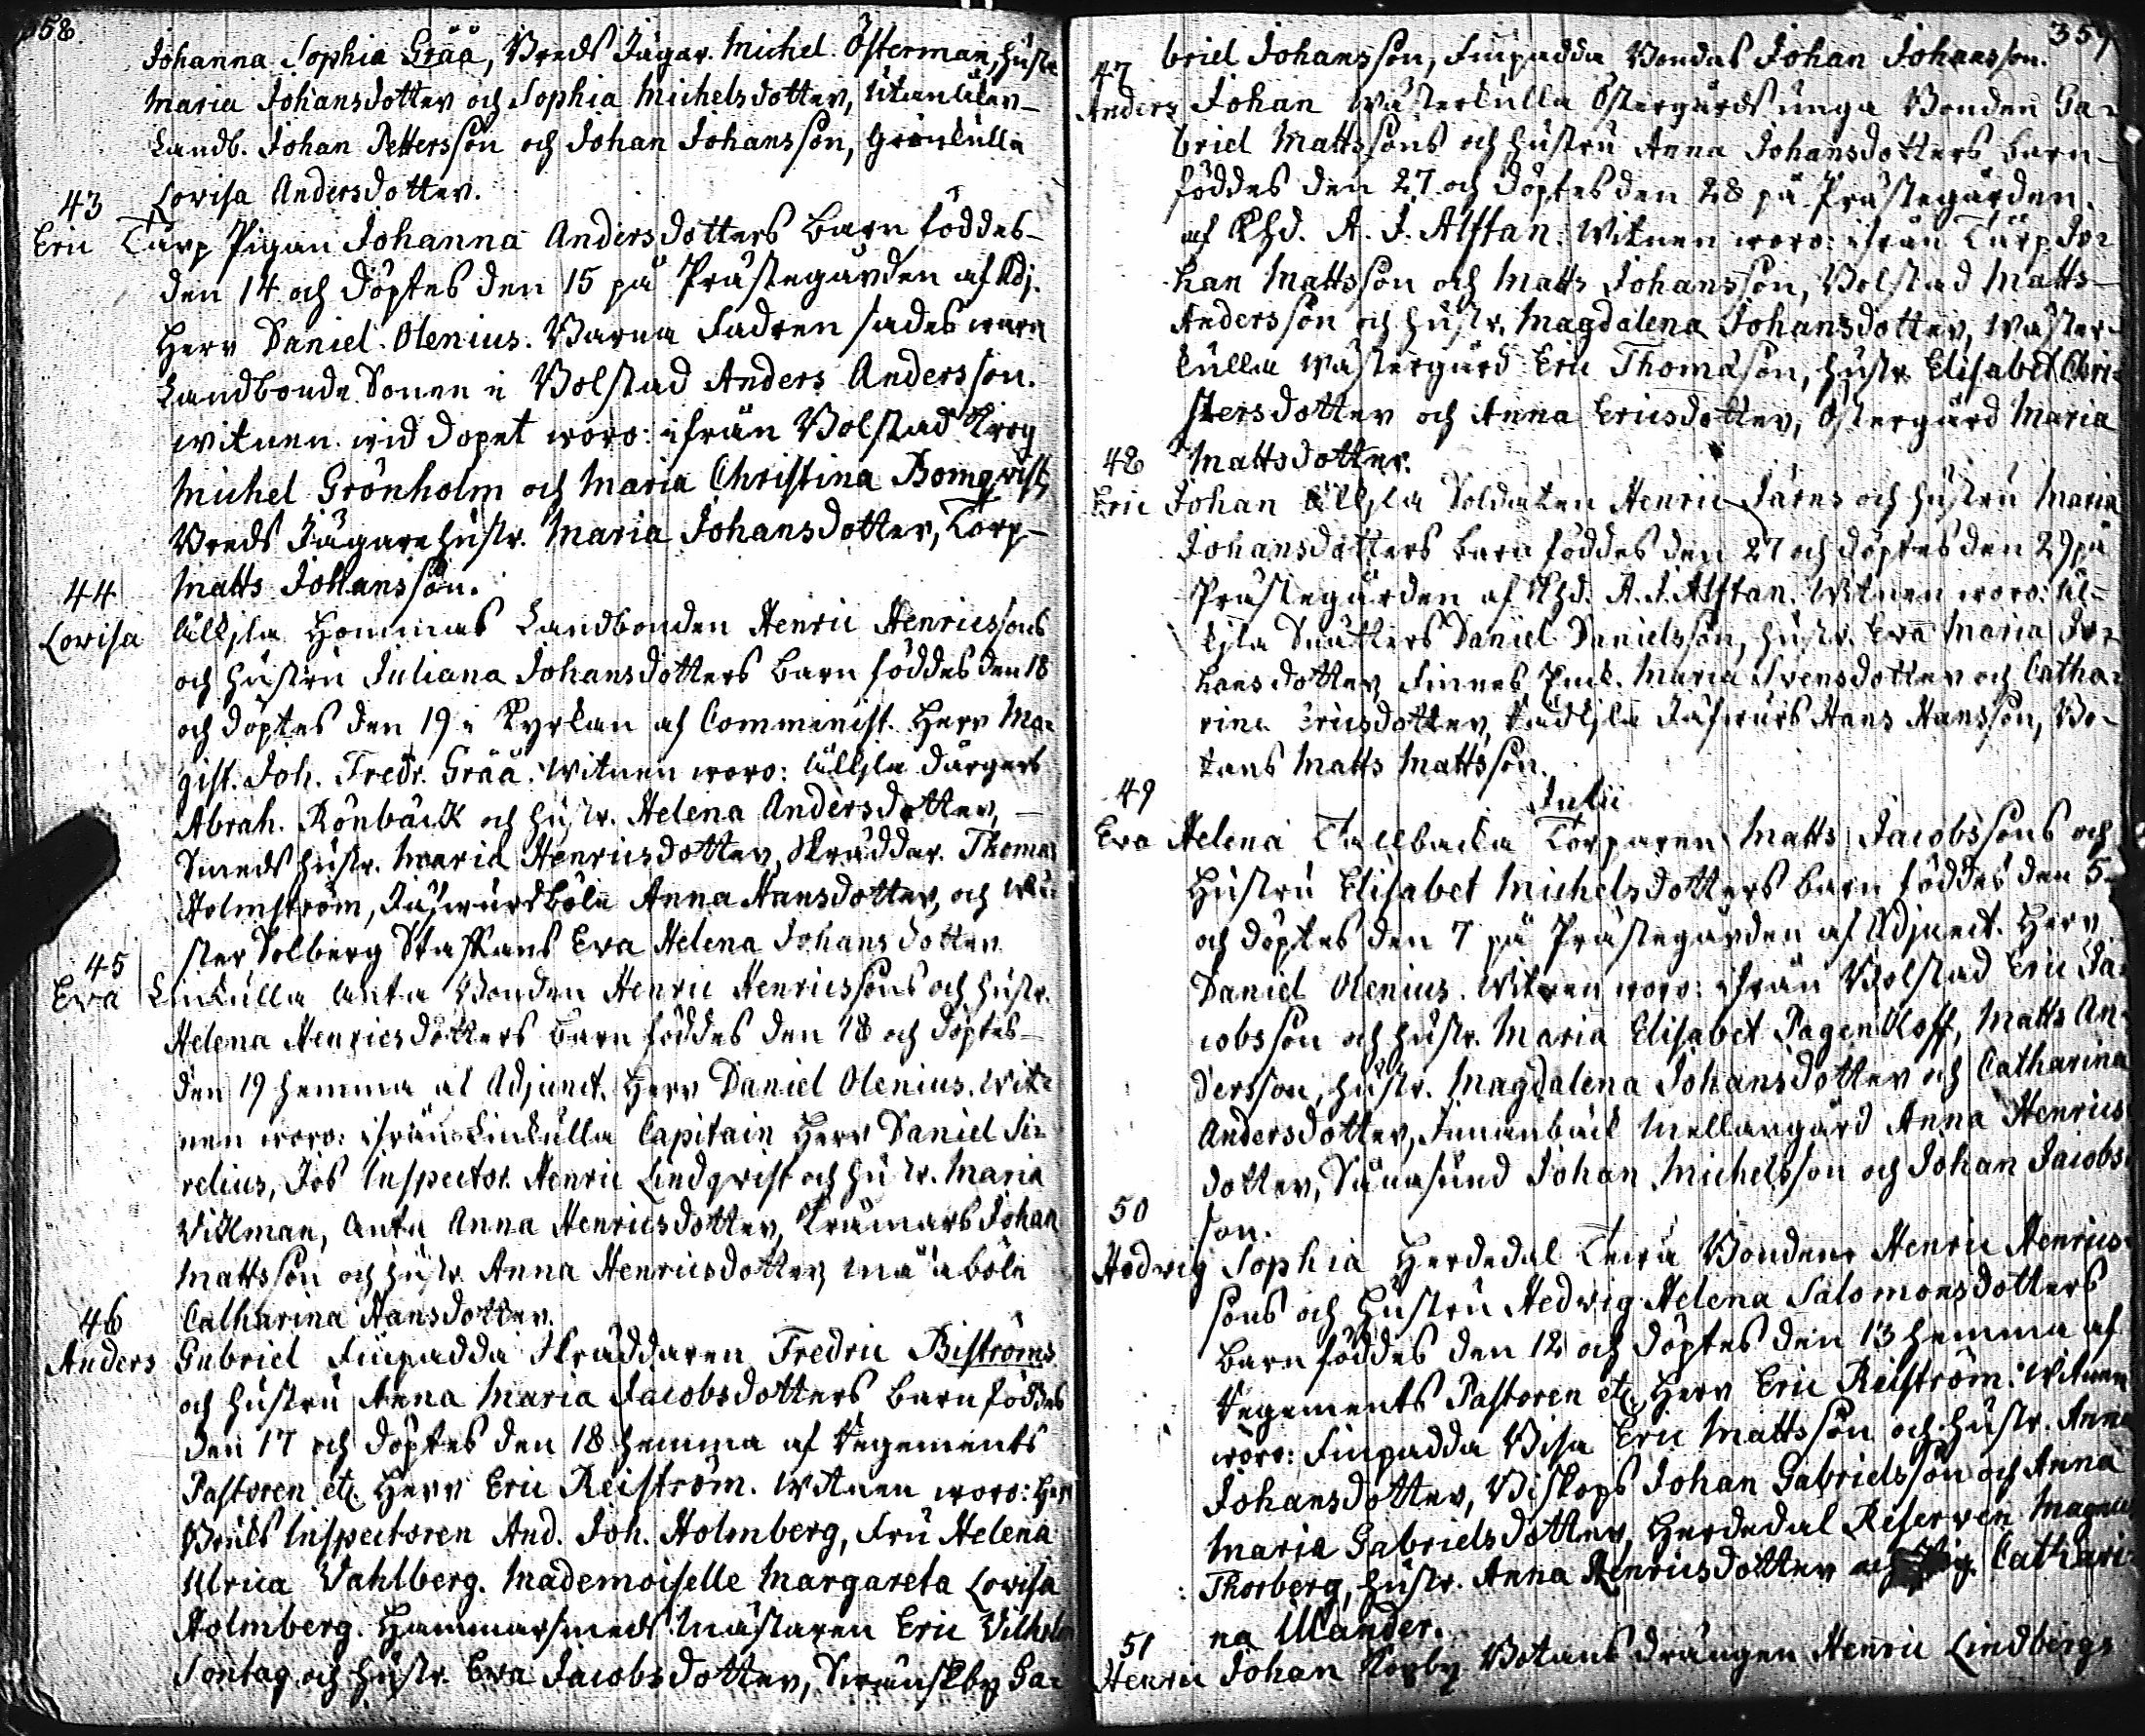 358.
Johanna Sophia Gråå, Breds Jägar. Michel Österman, hustr
Maria Johansdotter och Sophia Michelsdotter,
Landb. Johan Pettersson och Johan Johansson, Grönkulla
Lovisa Andersdotter.
43
Eric Torp Pigan Johanna Andersdotters barn föddes
den 14 och döptes den 15 på Prästegården af Adj.
Herr Daniel Olenius. Barna Fadren sades vara
Landbonde Sonen i Bolstad Anders Andersson.
witnen wid dopet woro: ifrån Bolstad Krog
Michel Grönholm och Maria Christina Bomqvist,
Breds Jägare hustr. Maria Johansdotter, Torp
Matts Johansson.
44
Lovisa Ulrica Hommas Landbonden Henric Henricssons
och hustru Juliana Johansdotters barn föddes den 18
och döptes den 19 i Kyrkan af Comminist. Herr Ma-
gist. Joh. Fredr. Gråå. Witnen woro:
Abrah. Rönbäck och hustr. Helena Andersdotter,
Smeds hustr. Maria Henricsdotter, Skräddar. Thomas
Holmström, Anna Hansdotter, och Wä-
ster Solberg Staffans Eva Helena Johansdotter
45
Eva Linkulla Anta Bonden Henric Henricssons och hustr.
Helena Henricsdotters barn föddes den 18 och döptes
den 19 hemma af Adjunct. Herr Daniel Olenius. Wit-
nen woro: ifrån Linkulla Capitain Herr Daniel Si-
relius, Dess Inspector. Henric Lindqvist och hustr. Maria
Widman, Anta Anna Henricsdotter, Krämars Johan
Mattsson och hustr. Anna Henricsdotter,
Catharina Hansdotter.
46
Anders Gabriel Finpadda Skräddaren Fredric Biströms
och hustru Anna Maria Jacobsdotters barn föddes
den 17 och döptes den 18 hemma af Regements
Pastoren etc. Herr Eric Reiström. Witnen woro: Herr
Bruks Inspectoren And. Joh. Holmberg, Fru Helena
Ulrica Wahlberg. Mademoiselle Margareta Lovisa
Holmberg. Hammarsmeds Mästaren Eric Wilhelm
Sontag och hustr. Eva Jacobsdotter, Ga-
359
briel Johansson, Finpadda Bondas Johan Johansson.
47
Anders Johan Wästerkulla Östergårds unga Bonden Ga-
briel Mattssons och hustru Anna Johansdotters barn
föddes den 27 och döptes den 28 på Prästegården
af Khd. A. J. Alftan. Witnen woro: ifrån Torp Jo-
han Mattsson och Matts Johansson, Bolstad Matts
Andersson och hustr. Magdalena Johansdotter, Wäster-
kulla Wästergård Eric Thomasson, hustr. Elisabet Chri-
stersdotter och Anna Ericsdotter, Östergård Maria
Mattsdotter.
48
Eric Johan Soldaten Henric Järns och hustru Maria
Johansdotters barn föddes den 27 och döptes den 29 på
Prästegården af Khd. A. J. Alftan. Witnen woro:
Daniel Danielsson, hustr. Eva Maria Jo-
hansdotter, Finnes Enk. Maria Svensdotter och Catha-
rina Ericsdotter, Hans Hansson, Bo-
tans Matts Mattsson.
Julii
49
Eva Helena Tallbacka Torparen Matts Jacobssons och
Hustru Elisabet Michelsdotters barn föddes den 5
och döptes den 7 på Prästegården af Adjunct. Herr
Daniel Olenius. Witnen woro: ifrån Bolstad Eric Ja-
cobsson och hustr. Maria Elisabet Pagenkloff, Matts An-
dersson, hustr. Magdalena Johansdotter och Catharina
Andersdotter, Innanbäck Mellangård Anna Henrics
dotter, Johan Michelsson och Johan Jacobs
son.
50
Hedwig Sophia Herdedal Bonden Henric Henrics
sons och Hustru Hedwig Helena Salomonsdotters
barn föddes den 12 och döptes den 13 hemma af
Regements Pastoren etc. Herr Eric Reiström. Witnen
woro: Finpadda Bisa Eric Mattsson och hustr. Anna
Johansdotter, Biskops Johan Gabrielsson och Anna
Maria Gabrielsdotter, Herdedal Reserven Magnus
Thorberg, hustr. Anna Henricsdotter och Pig. Cathari-
na Ulander.
51
Henric Johan Korby Botans drängen Henric Lindbergs